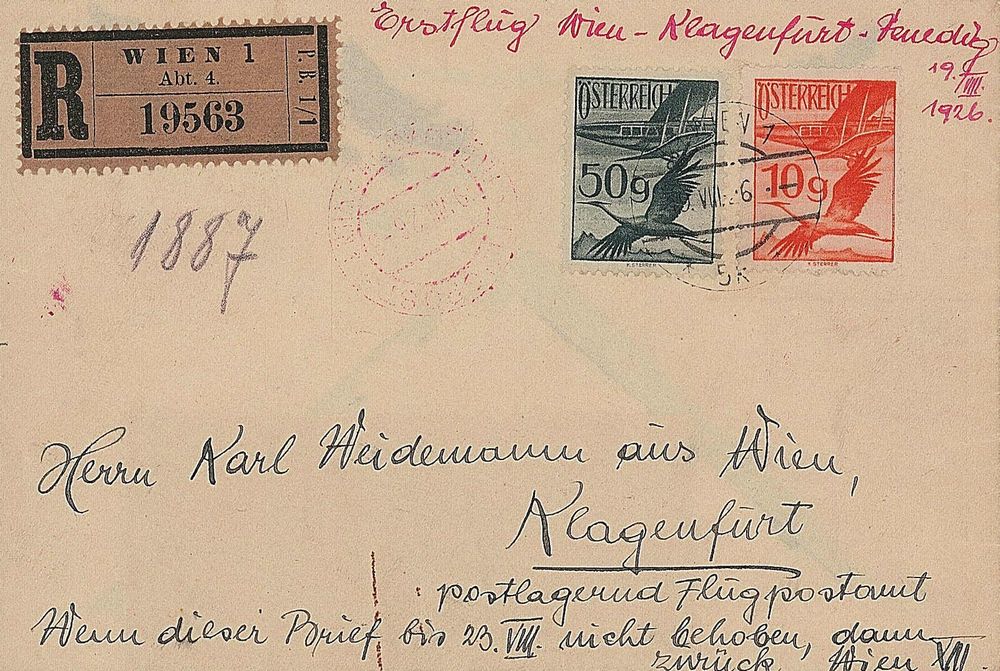 Erstflug Wien - Klagenfurt - Venedig
19. VIII.
1926.
R
WIEN 1
Abt. 4.
19563
P. B. 1/1
ÖSTERREICH
50g
K. STERRER
ÖSTERREICH
10g
K. STERRER
1887
Herrn Karl Weidemann aus Wien,
Klagenfurt
postlagernd Flugpostamt
Wenn dieser Brief bis 23. VIII. nicht behoben, dann
zurück Wien VII.